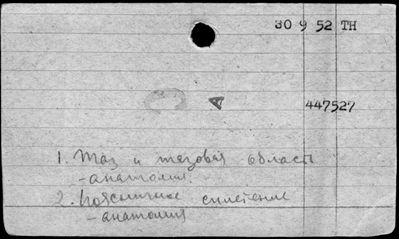 30 9 52 TH
A
447527
1. Таз и тазовая область
- анатомия.
2. Поясничное сплетение
- анатомия